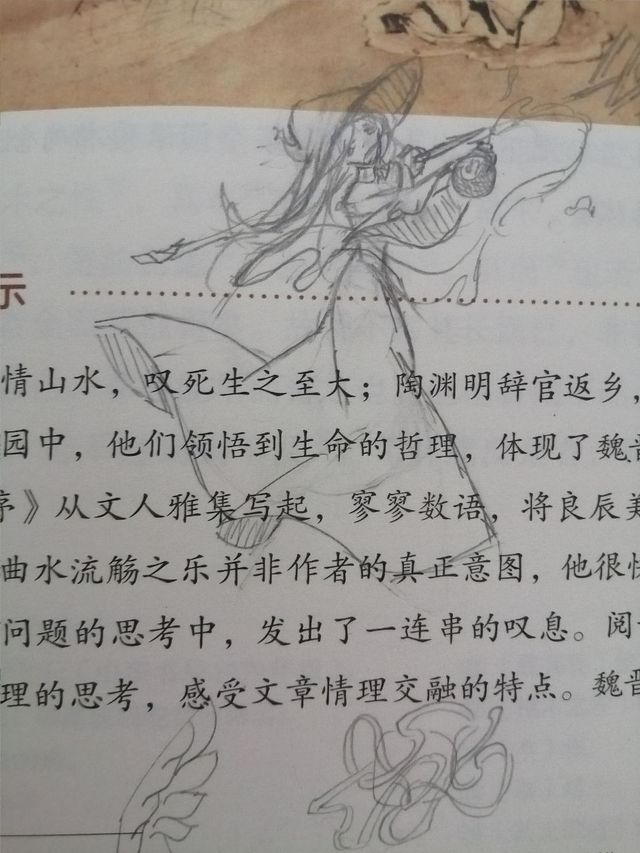 示
情山水，叹死生之至大；陶渊明辞官返乡，
园中，他们领悟到生命的哲理，体现了魏晋
序》从文人雅集写起，寥寥数语，将良辰美
曲水流觞之乐并非作者的真正意图，他很快
问题的思考中，发出了一连串的叹息。阅
理的思考，感受文章情理交融的特点。魏晋